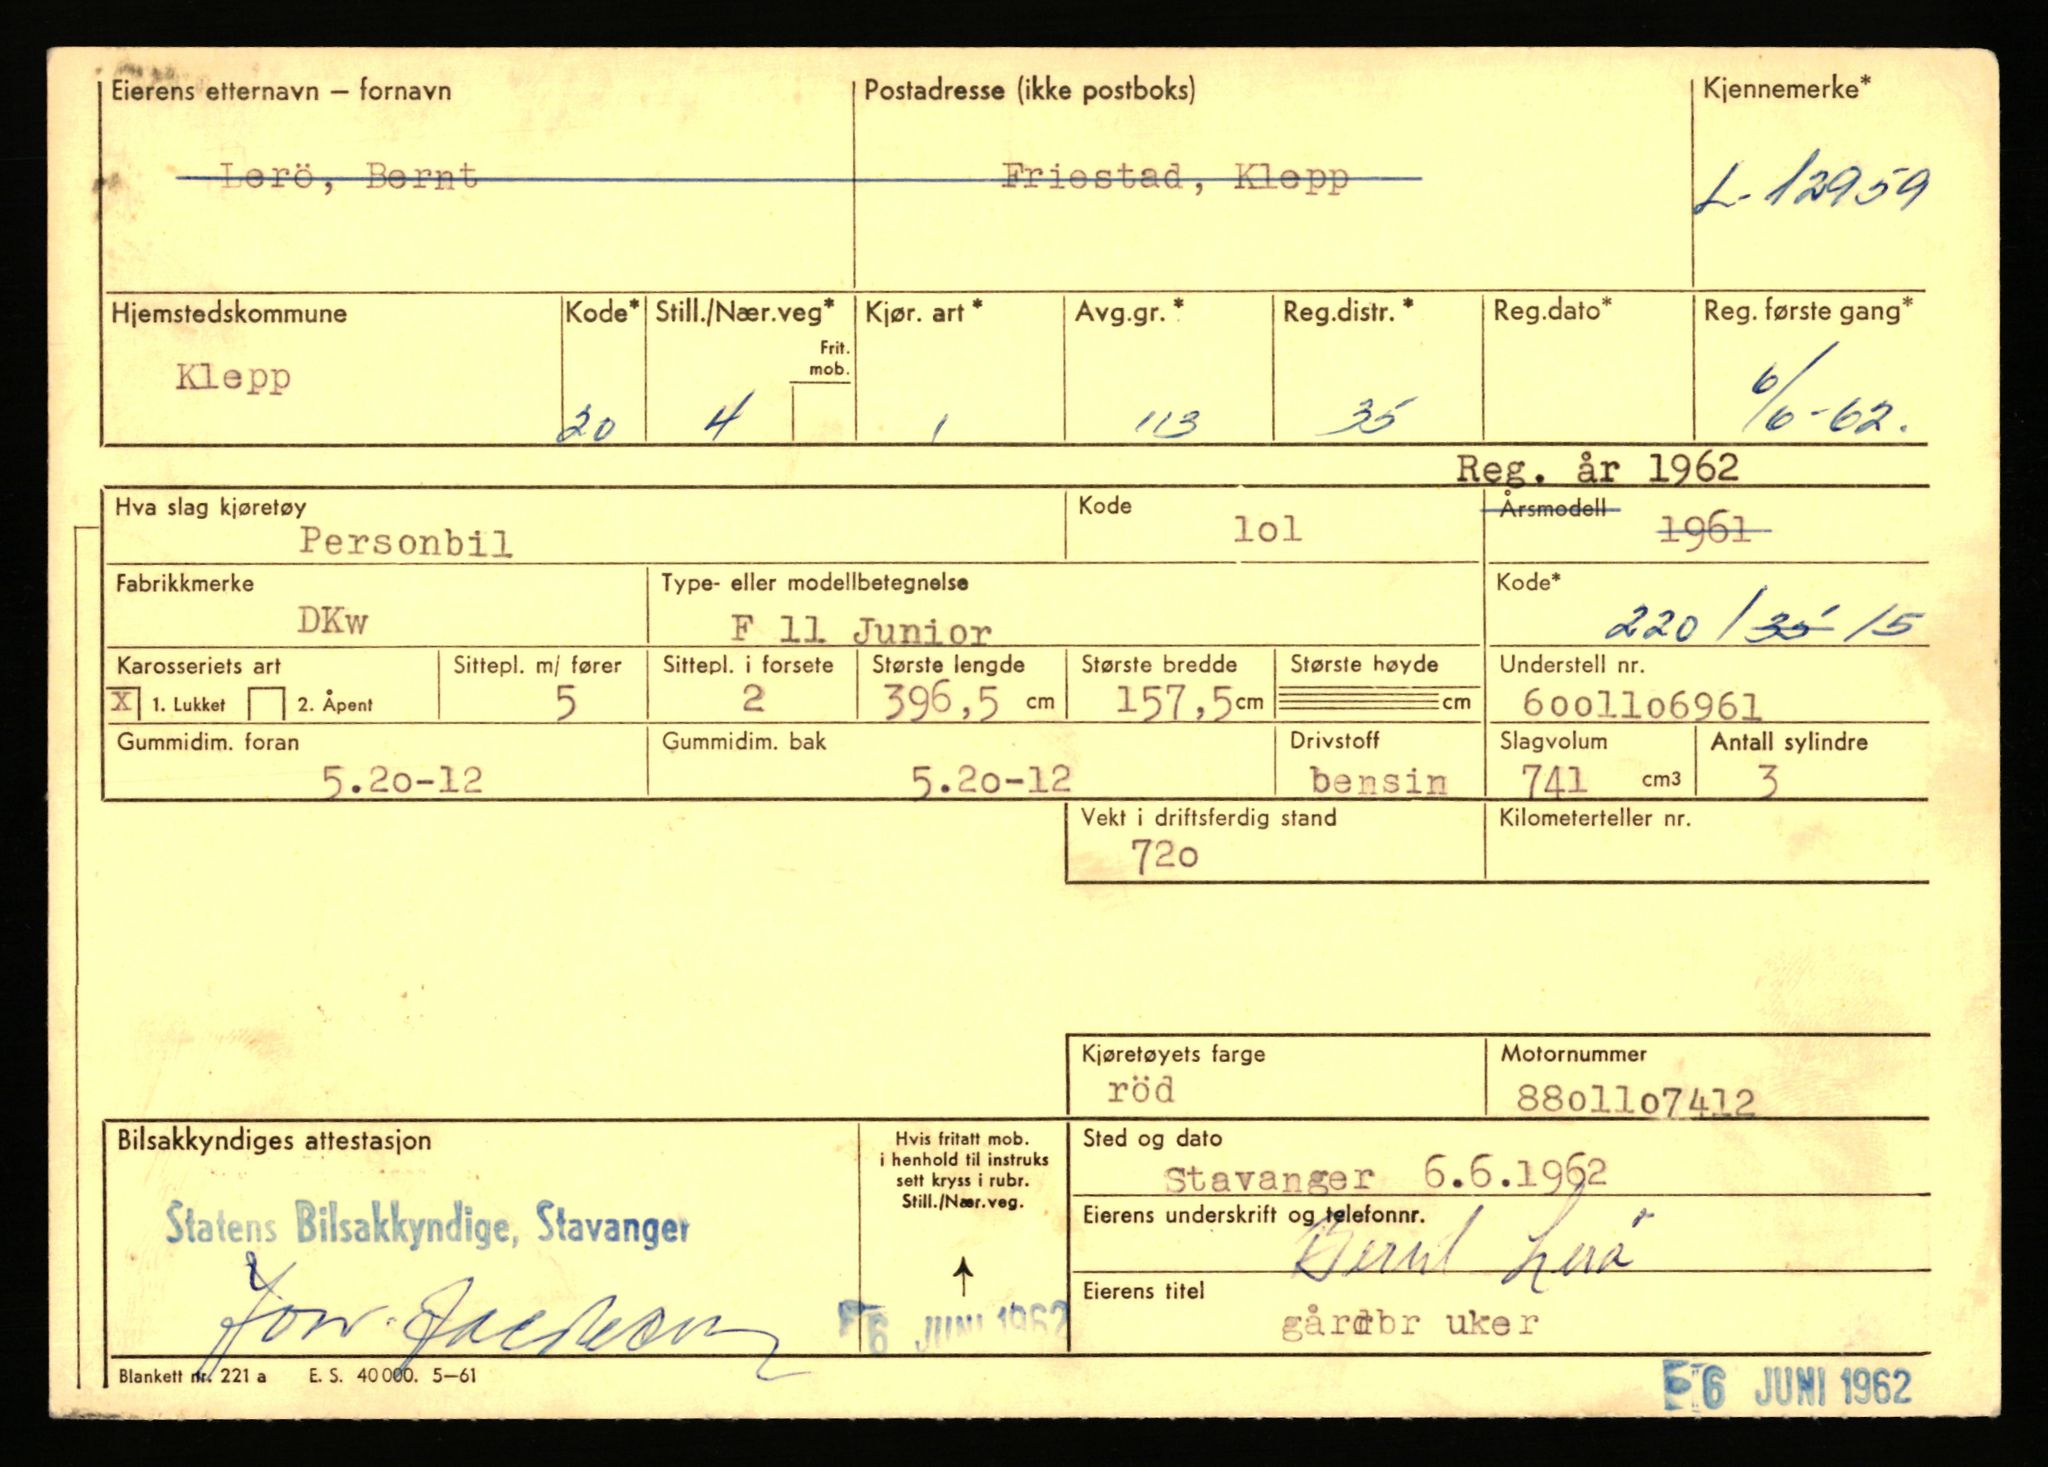 Eierens etternavn – fornavn
Postadresse (ikke postboks)
Kjennemerke*
Lerö, Bernt
Friestad, Klepp
L-12959
Hjemstedskommune
Kode*
Still./Nær.veg*
Kjør. art*
Avg.gr.*
Reg.distr.*
Reg.dato*
Reg. første gang*
Frit.
mob.
Klepp
20
4
1
113
35
6/6-62.
Reg. år 1962
Hva slag kjøretøy
Kode
Årsmodell
Personbil
lol
1961
Fabrikkmerke
Type- eller modellbetegnelse
Kode*
DKw
F 11 Junior
220 / 35 15
Karosseriets art
Sittepl. m/ fører
Sittepl. i forsete
Største lengde
Største bredde
Største høyde
Understell nr.
X 1. Lukket
2. Åpent
5
2
396,5 cm
157,5 cm
cm
6oo11o6961
Gummidim. foran
Gummidim. bak
Drivstoff
Slagvolum
Antall sylindre
5.2o-12
5.2o-12
bensin
741 cm3
3
Vekt i driftsferdig stand
Kilometerteller nr.
72o
Kjøretøyets farge
Motornummer
röd
88o11o7412
Bilsakkyndiges attestasjon
Hvis fritatt mob.
i henhold til instruks
sett kryss i rubr.
Still./Nær.veg.
Sted og dato
Stavanger 6.6.1962
Statens Bilsakkyndige, Stavanger
Eierens underskrift og telefonnr.
Bernt Lerö
Eierens titel
gårdbr uker
6 JUNI 1962
Blankett nr. 221 a E. S. 40 000. 5–61
6 JUNI 1962